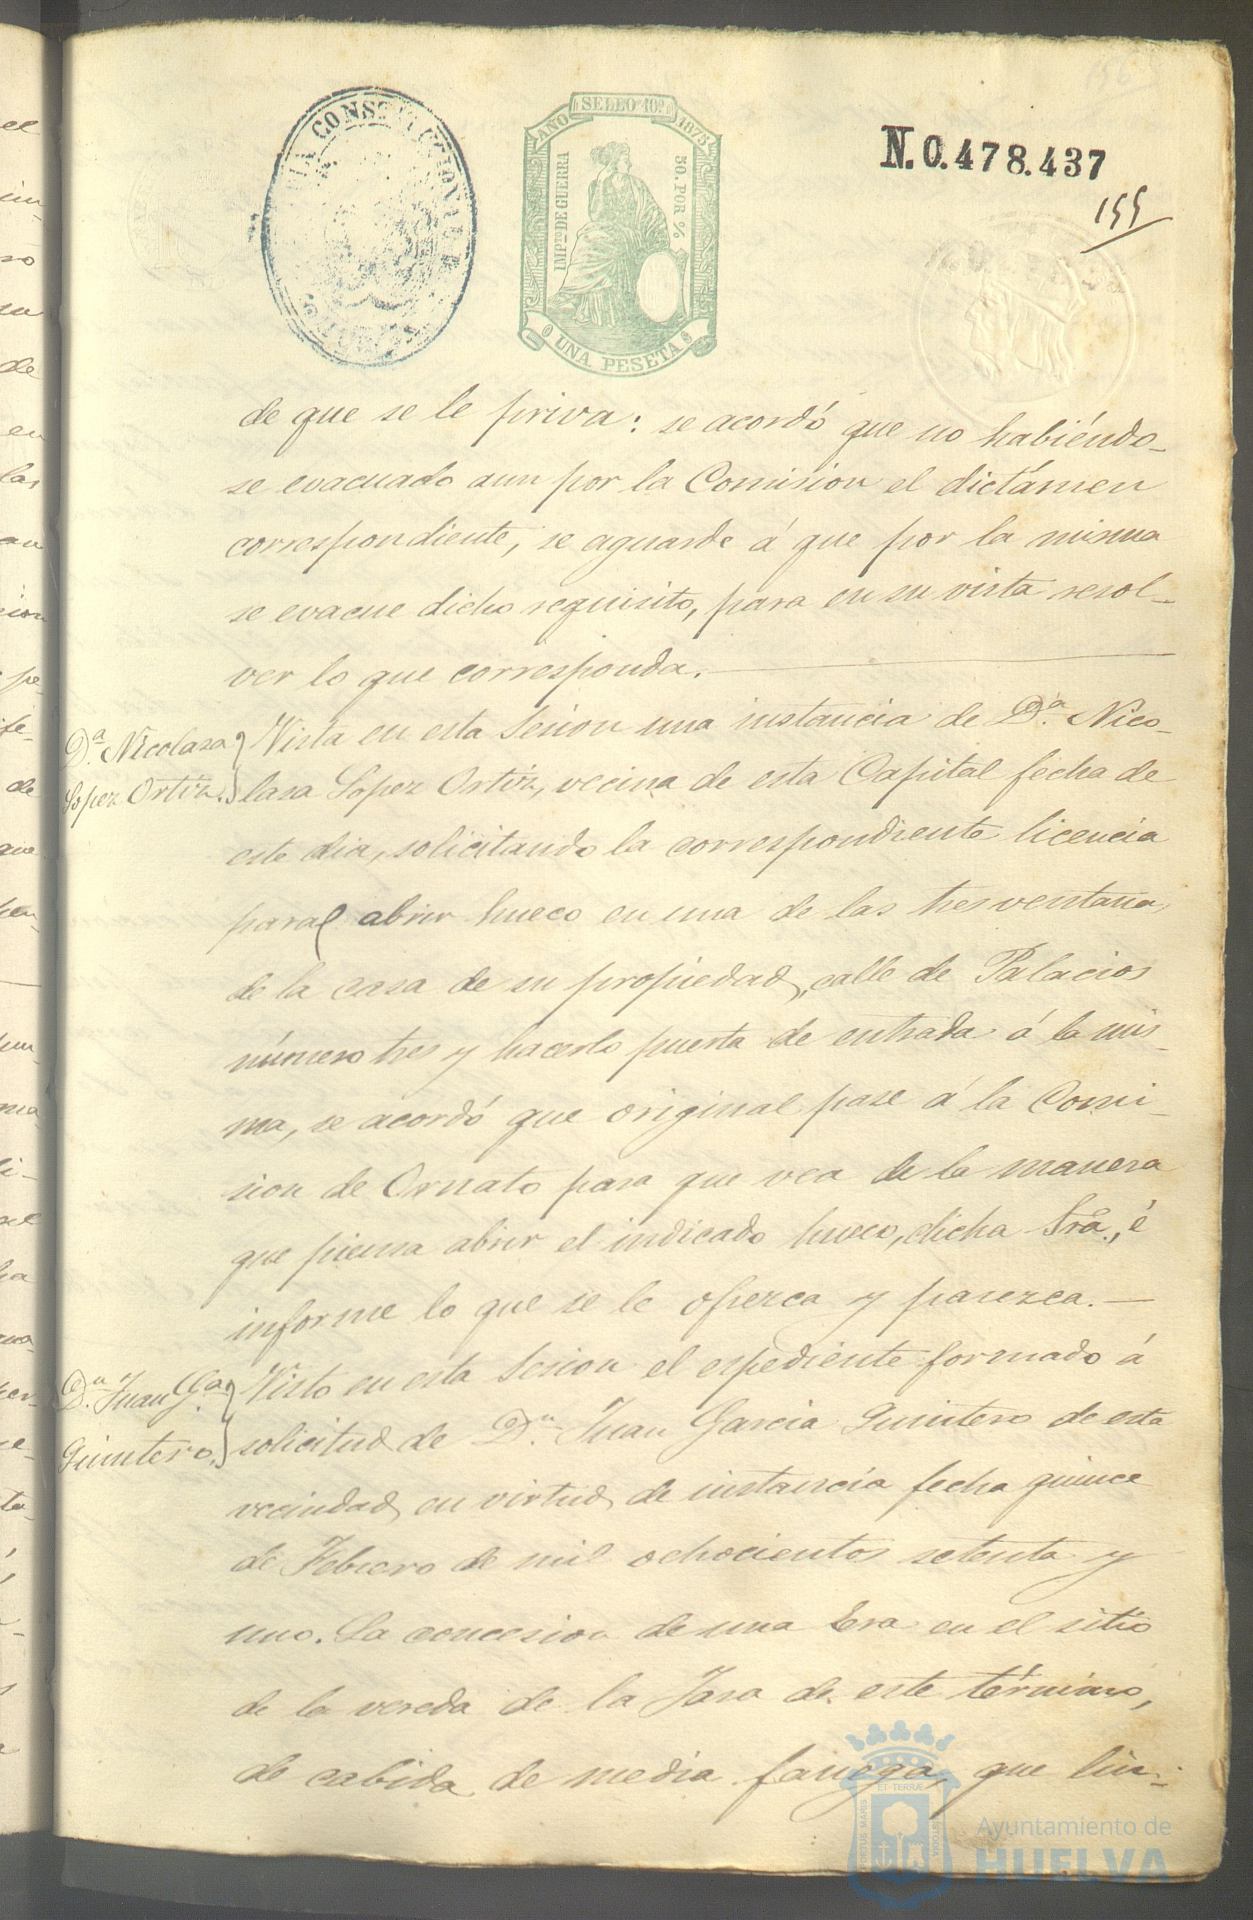 AÑO SELLO 10º 1875
IMPTO DE GUERRA
50. POR %
UNA PESETA
CONSTITUCIONAL
N.0.478.437
155
de que se le priva: se acordó que no habiéndo-
se evacuado aun por la Comision el dictámen
correspondiente, se aguarde á que por la misma
se evacue dicho requisito, para en su vista resol-
ver lo que corresponda.
Dª. Nicolasa
Lopez Ortiz.
Vista en esta Sesion una instancia de Dª. Nico-
lasa Lopez Ortiz, vecina de esta Capital fecha de
este dia, solicitando la correspondiente licencia
para abrir hueco en una de las tres ventanas
de la casa de su propiedad, calle de Palacios
número tres y hacerlo puerta de entrada á la mis-
ma, se acordó que original pase á la Comi-
sion de Ornato para que vea de la manera
que piensa abrir el indicado hueco, dicha Sra., é
informe lo que se le ofrezca y parezca.—
Dn. Juan Gª.
Quintero.
Visto en esta Sesion el espediente formado á
solicitud de Dn. Juan Garcia Quintero de esta
vecindad en virtud de instancia fecha quince
de Febrero de mil ochocientos setenta y
uno. La concesion de una Era en el sitio
de la vereda de la Jara de este término,
de cabida de media fanega, que lin-
PORTUS MARIS ET TERRAE CUSTODIA
Ayuntamiento de
HUELVA